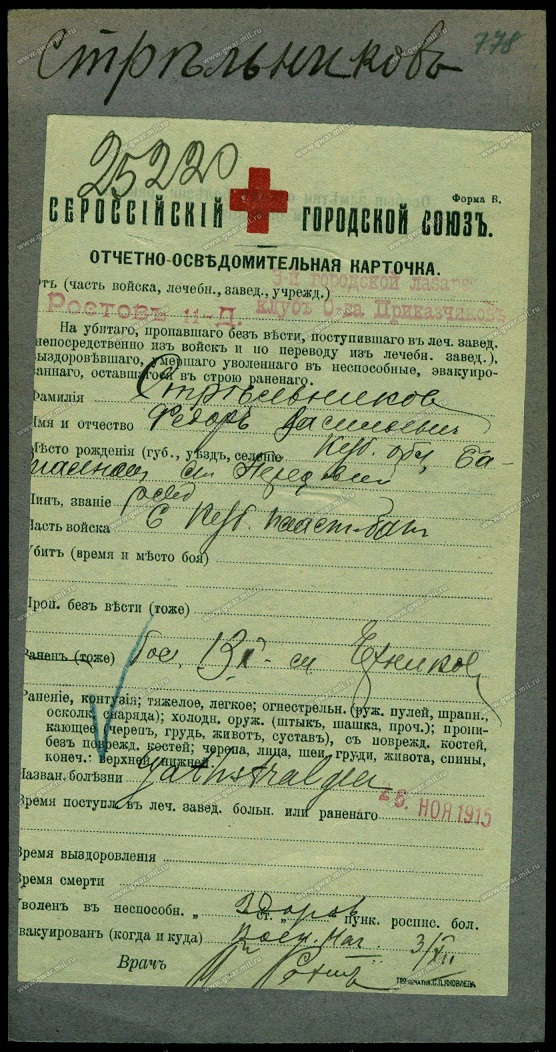 Стрѣльниковъ
778
25220
Форма Б.
СЕРОССІЙСКІЙ ГОРОДСКОЙ СОЮЗЪ.
ОТЧЕТНО-ОСВѢДОМИТЕЛЬНАЯ КАРТОЧКА.
3-й городской лазар
отъ (часть войска, лечебн., завед., учрежд.)
Ростовъ н-Д. Клубъ О-ва Приказчиковъ
На убитаго, пропавшаго безъ вѣсти, поступившаго въ леч. завед.
непосредственно изъ войскъ и но переводу изъ лечебн. завед.),
выздоровѣвшаго, умершаго уволеннаго въ неспособные, эвакуиро-
ваннаго, оставшагося въ строю раненаго.
Фамилія Стрѣльниковъ
Имя и отчество Федоръ Васильевич
Мѣсто рожденія (губ., уѣздъ, селеніе Куб. обл, Ба-
Передовой
Чинъ, званіе
Часть войска 6 Куб. пласт. бат
Убитъ (время и мѣсто боя)
Проп. безъ вѣсти (тоже)
Раненъ (тоже) бол.
Раненіе, контузія; тяжелое, легкое; огнестрельн. (руж. пулей, шрапн.,
осколк. снаряда); холодн. оруж. (штыкъ, шашка, проч.); прони-
кающее (черепъ, грудь, животъ, суставъ), съ поврежд. костей,
безъ поврежд. костей; черепа, лица, шеи, груди, живота, спины,
конеч.: верхней, нижней.
Назван. болѣзни
Время поступл. въ леч. завед. больн. или раненаго 28. НОЯ 1915
Время выздоровленія
Время смерти
Уволенъ въ неспособн. „ ст. „ пунк. роспис. бол.
Здоров
Эвакуированъ (когда и куда) Воен. Нач. 3/XII
Врачъ
Типо-печатня С.П. ЯКОВЛЕВА.
www.gwar.mil.ru